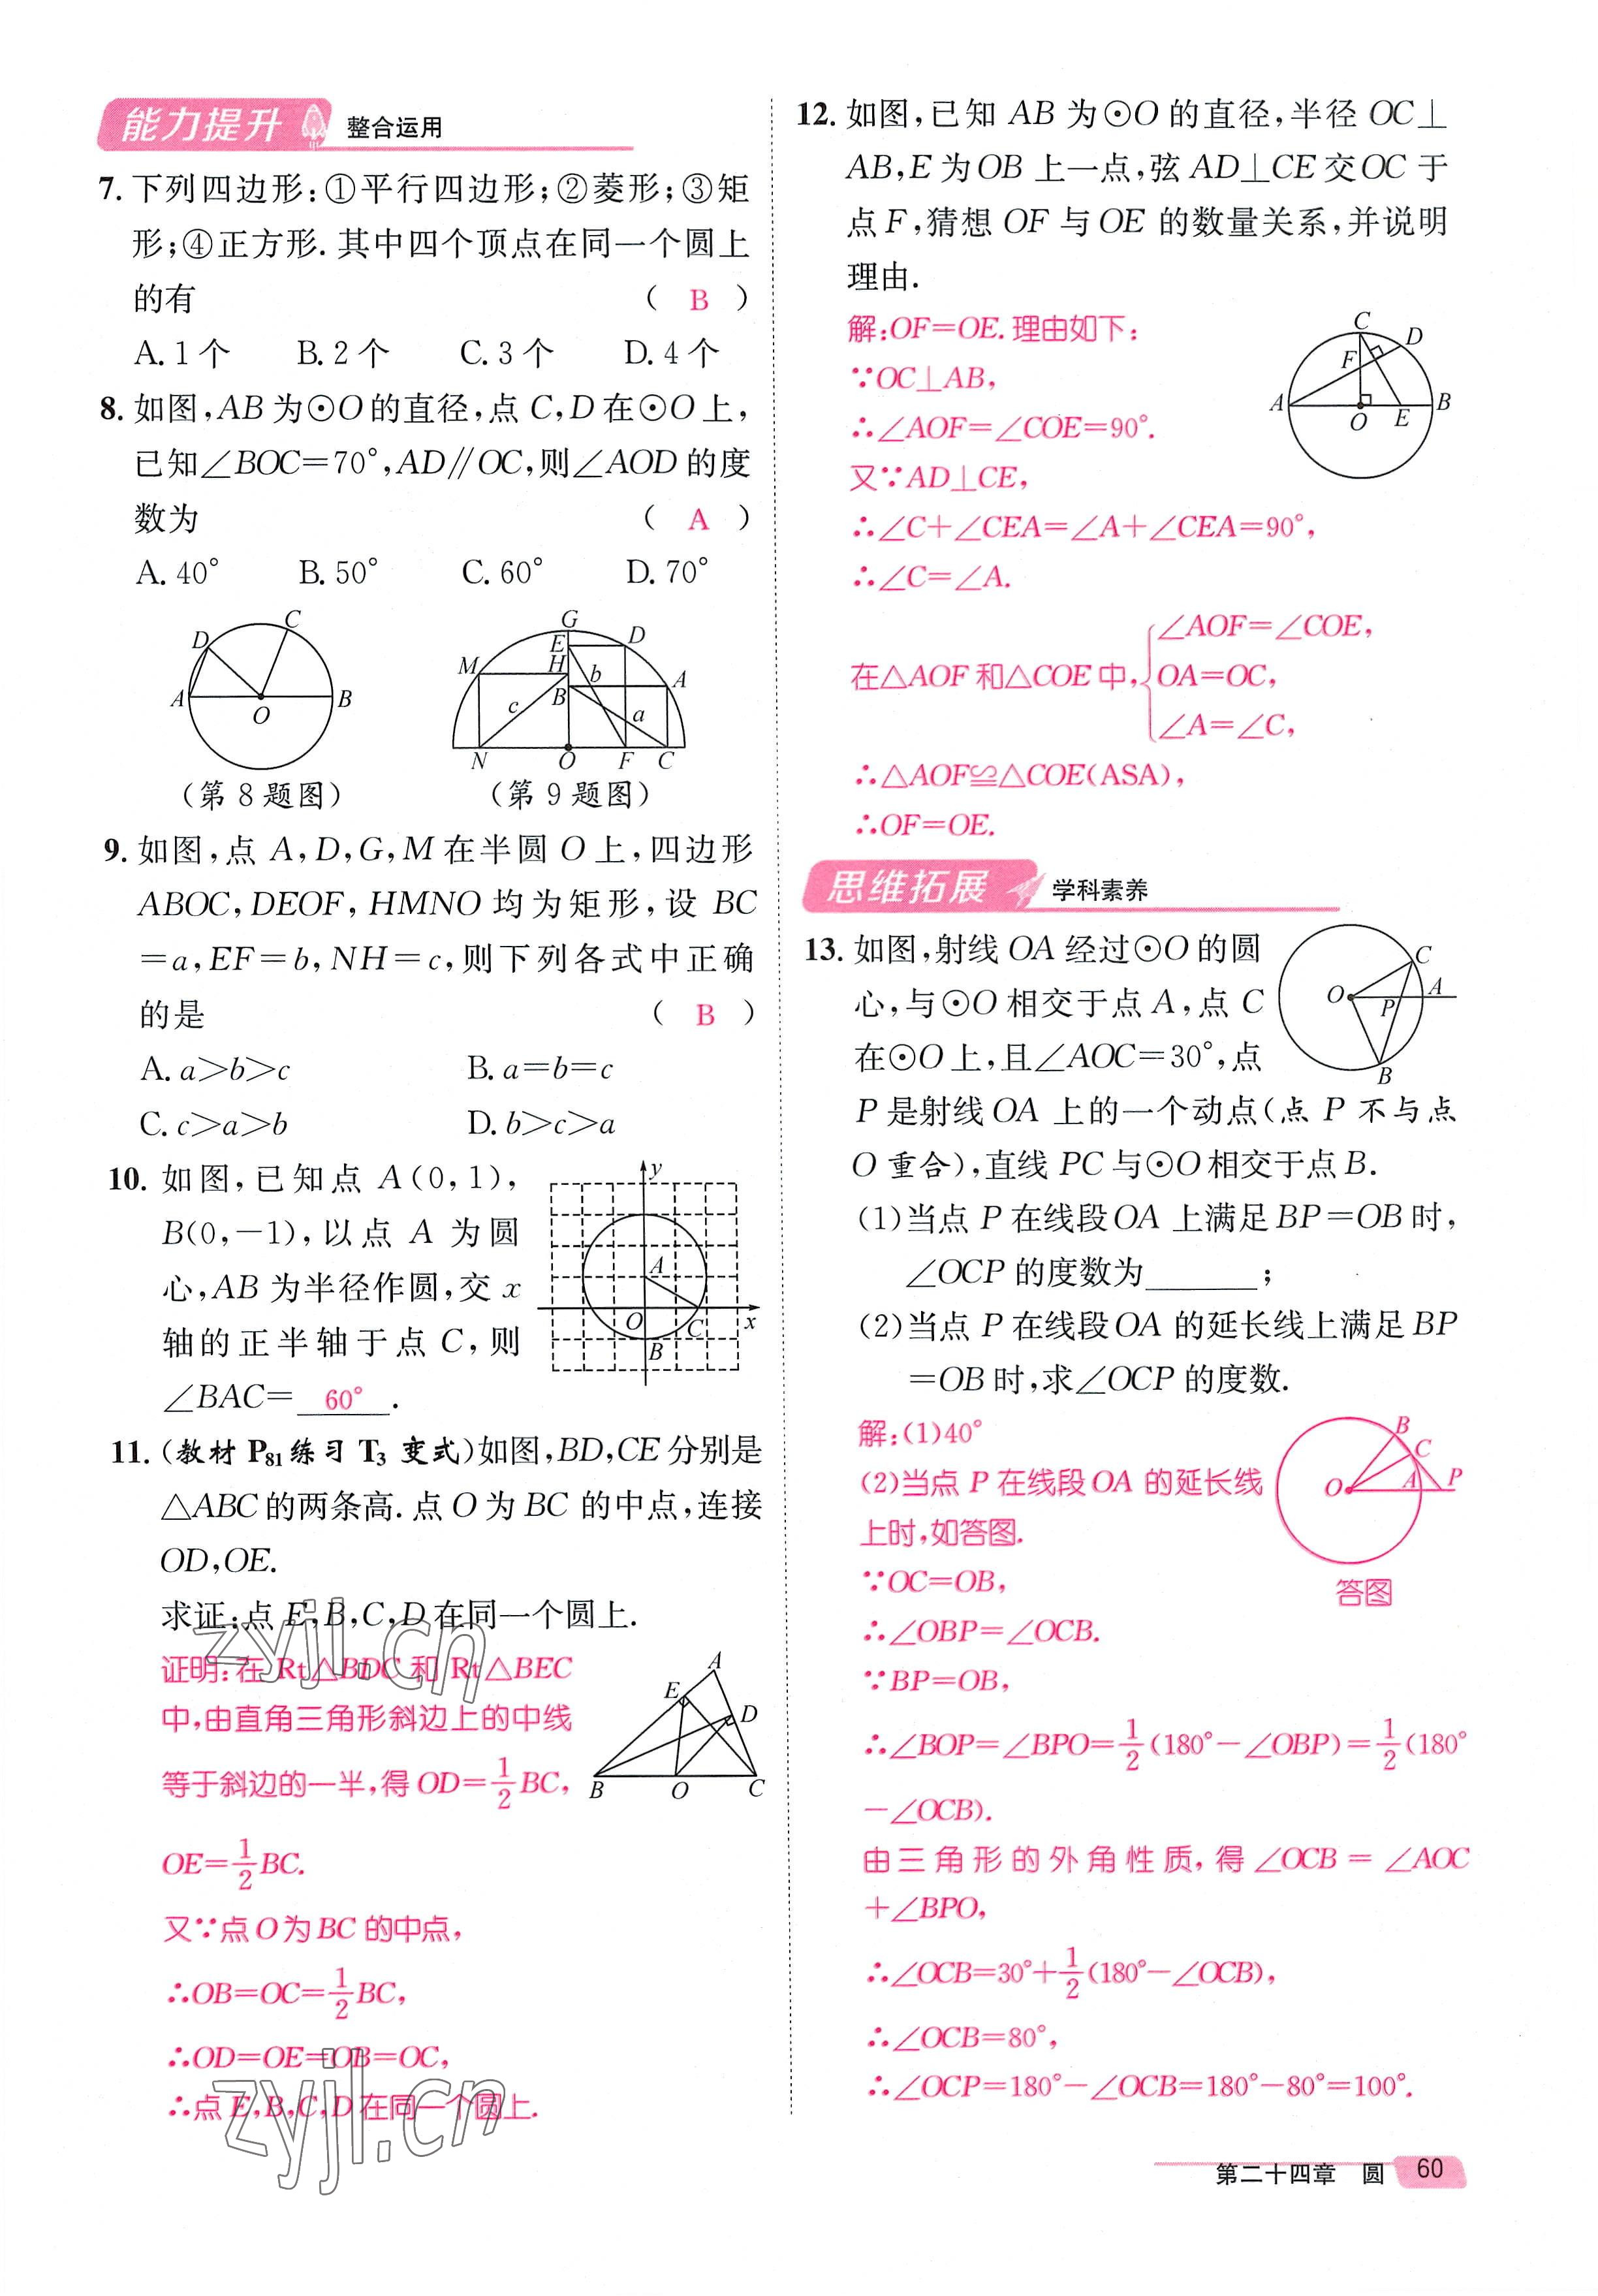 能力提升 整合运用
7. 下列四边形:①平行四边形;②菱形;③矩
形;④正方形. 其中四个顶点在同一个圆上
的有 ( B )
A. 1 个 B. 2 个 C. 3 个 D. 4 个
8. 如图,AB 为⊙O 的直径,点 C,D 在⊙O 上,
已知∠BOC=70°,AD∥OC,则∠AOD 的度
数为 ( A )
A. 40° B. 50° C. 60° D. 70°
D C A O B
(第 8 题图)
G E D M H b A B c a N O F C
(第 9 题图)
9. 如图,点 A,D,G,M 在半圆 O 上,四边形
ABOC,DEOF,HMNO 均为矩形,设 BC
=a,EF=b,NH=c,则下列各式中正确
的是 ( B )
A. a>b>c B. a=b=c
C. c>a>b D. b>c>a
10. 如图,已知点 A(0,1),
B(0,-1),以点 A 为圆
心,AB 为半径作圆,交 x
轴的正半轴于点 C,则
∠BAC= 60° .
y A O C x B
11. (教材 P81 练习 T3 变式)如图,BD,CE 分别是
△ABC 的两条高. 点 O 为 BC 的中点,连接
OD,OE.
求证:点 E,B,C,D 在同一个圆上.
证明:在 Rt△BDC 和 Rt△BEC
中,由直角三角形斜边上的中线
等于斜边的一半,得 OD=1/2BC,
OE=1/2BC.
又∵点 O 为 BC 的中点,
∴OB=OC=1/2BC,
∴OD=OE=OB=OC,
∴点 E,B,C,D 在同一个圆上.
A E D B O C
zyjl.cn
zyjl.cn
12. 如图,已知 AB 为⊙O 的直径,半径 OC⊥
AB,E 为 OB 上一点,弦 AD⊥CE 交 OC 于
点 F,猜想 OF 与 OE 的数量关系,并说明
理由.
解:OF=OE. 理由如下:
∵OC⊥AB,
∴∠AOF=∠COE=90°.
又∵AD⊥CE,
∴∠C+∠CEA=∠A+∠CEA=90°,
∴∠C=∠A.
∠AOF=∠COE,
在△AOF 和△COE 中,{OA=OC,
∠A=∠C,
∴△AOF≌△COE(ASA),
∴OF=OE.
C D F A O E B
思维拓展 学科素养
13. 如图,射线 OA 经过⊙O 的圆
心,与⊙O 相交于点 A,点 C
在⊙O 上,且∠AOC=30°,点
P 是射线 OA 上的一个动点(点 P 不与点
O 重合),直线 PC 与⊙O 相交于点 B.
C O P A B
(1)当点 P 在线段 OA 上满足 BP=OB 时,
∠OCP 的度数为______;
(2)当点 P 在线段 OA 的延长线上满足 BP
=OB 时,求∠OCP 的度数.
解:(1)40°
(2)当点 P 在线段 OA 的延长线
上时,如答图.
∵OC=OB,
∴∠OBP=∠OCB.
∵BP=OB,
∴∠BOP=∠BPO=1/2(180°-∠OBP)=1/2(180°
-∠OCB).
由三角形的外角性质,得∠OCB=∠AOC
+∠BPO,
∴∠OCB=30°+1/2(180°-∠OCB),
∴∠OCB=80°,
∴∠OCP=180°-∠OCB=180°-80°=100°.
B C O A P
答图
第二十四章 圆 60